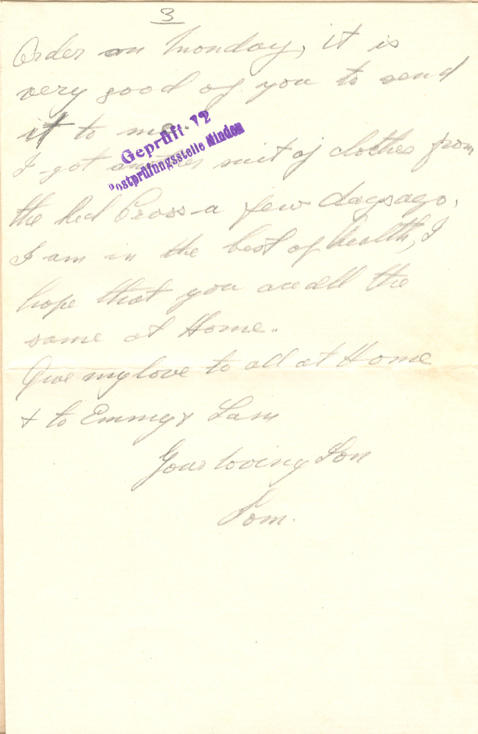 3
Order on Monday, it is
very good of you to send
it to me
Geprüft. 12
Postprüfungsstelle Minden
I got another suit of clothes from
the Red Cross a few days ago.
I am in the best of health, I
hope that you are all the
same at Home.
Give my love to all at Home
& to Emmy & Sam
Your loving Son
Tom.